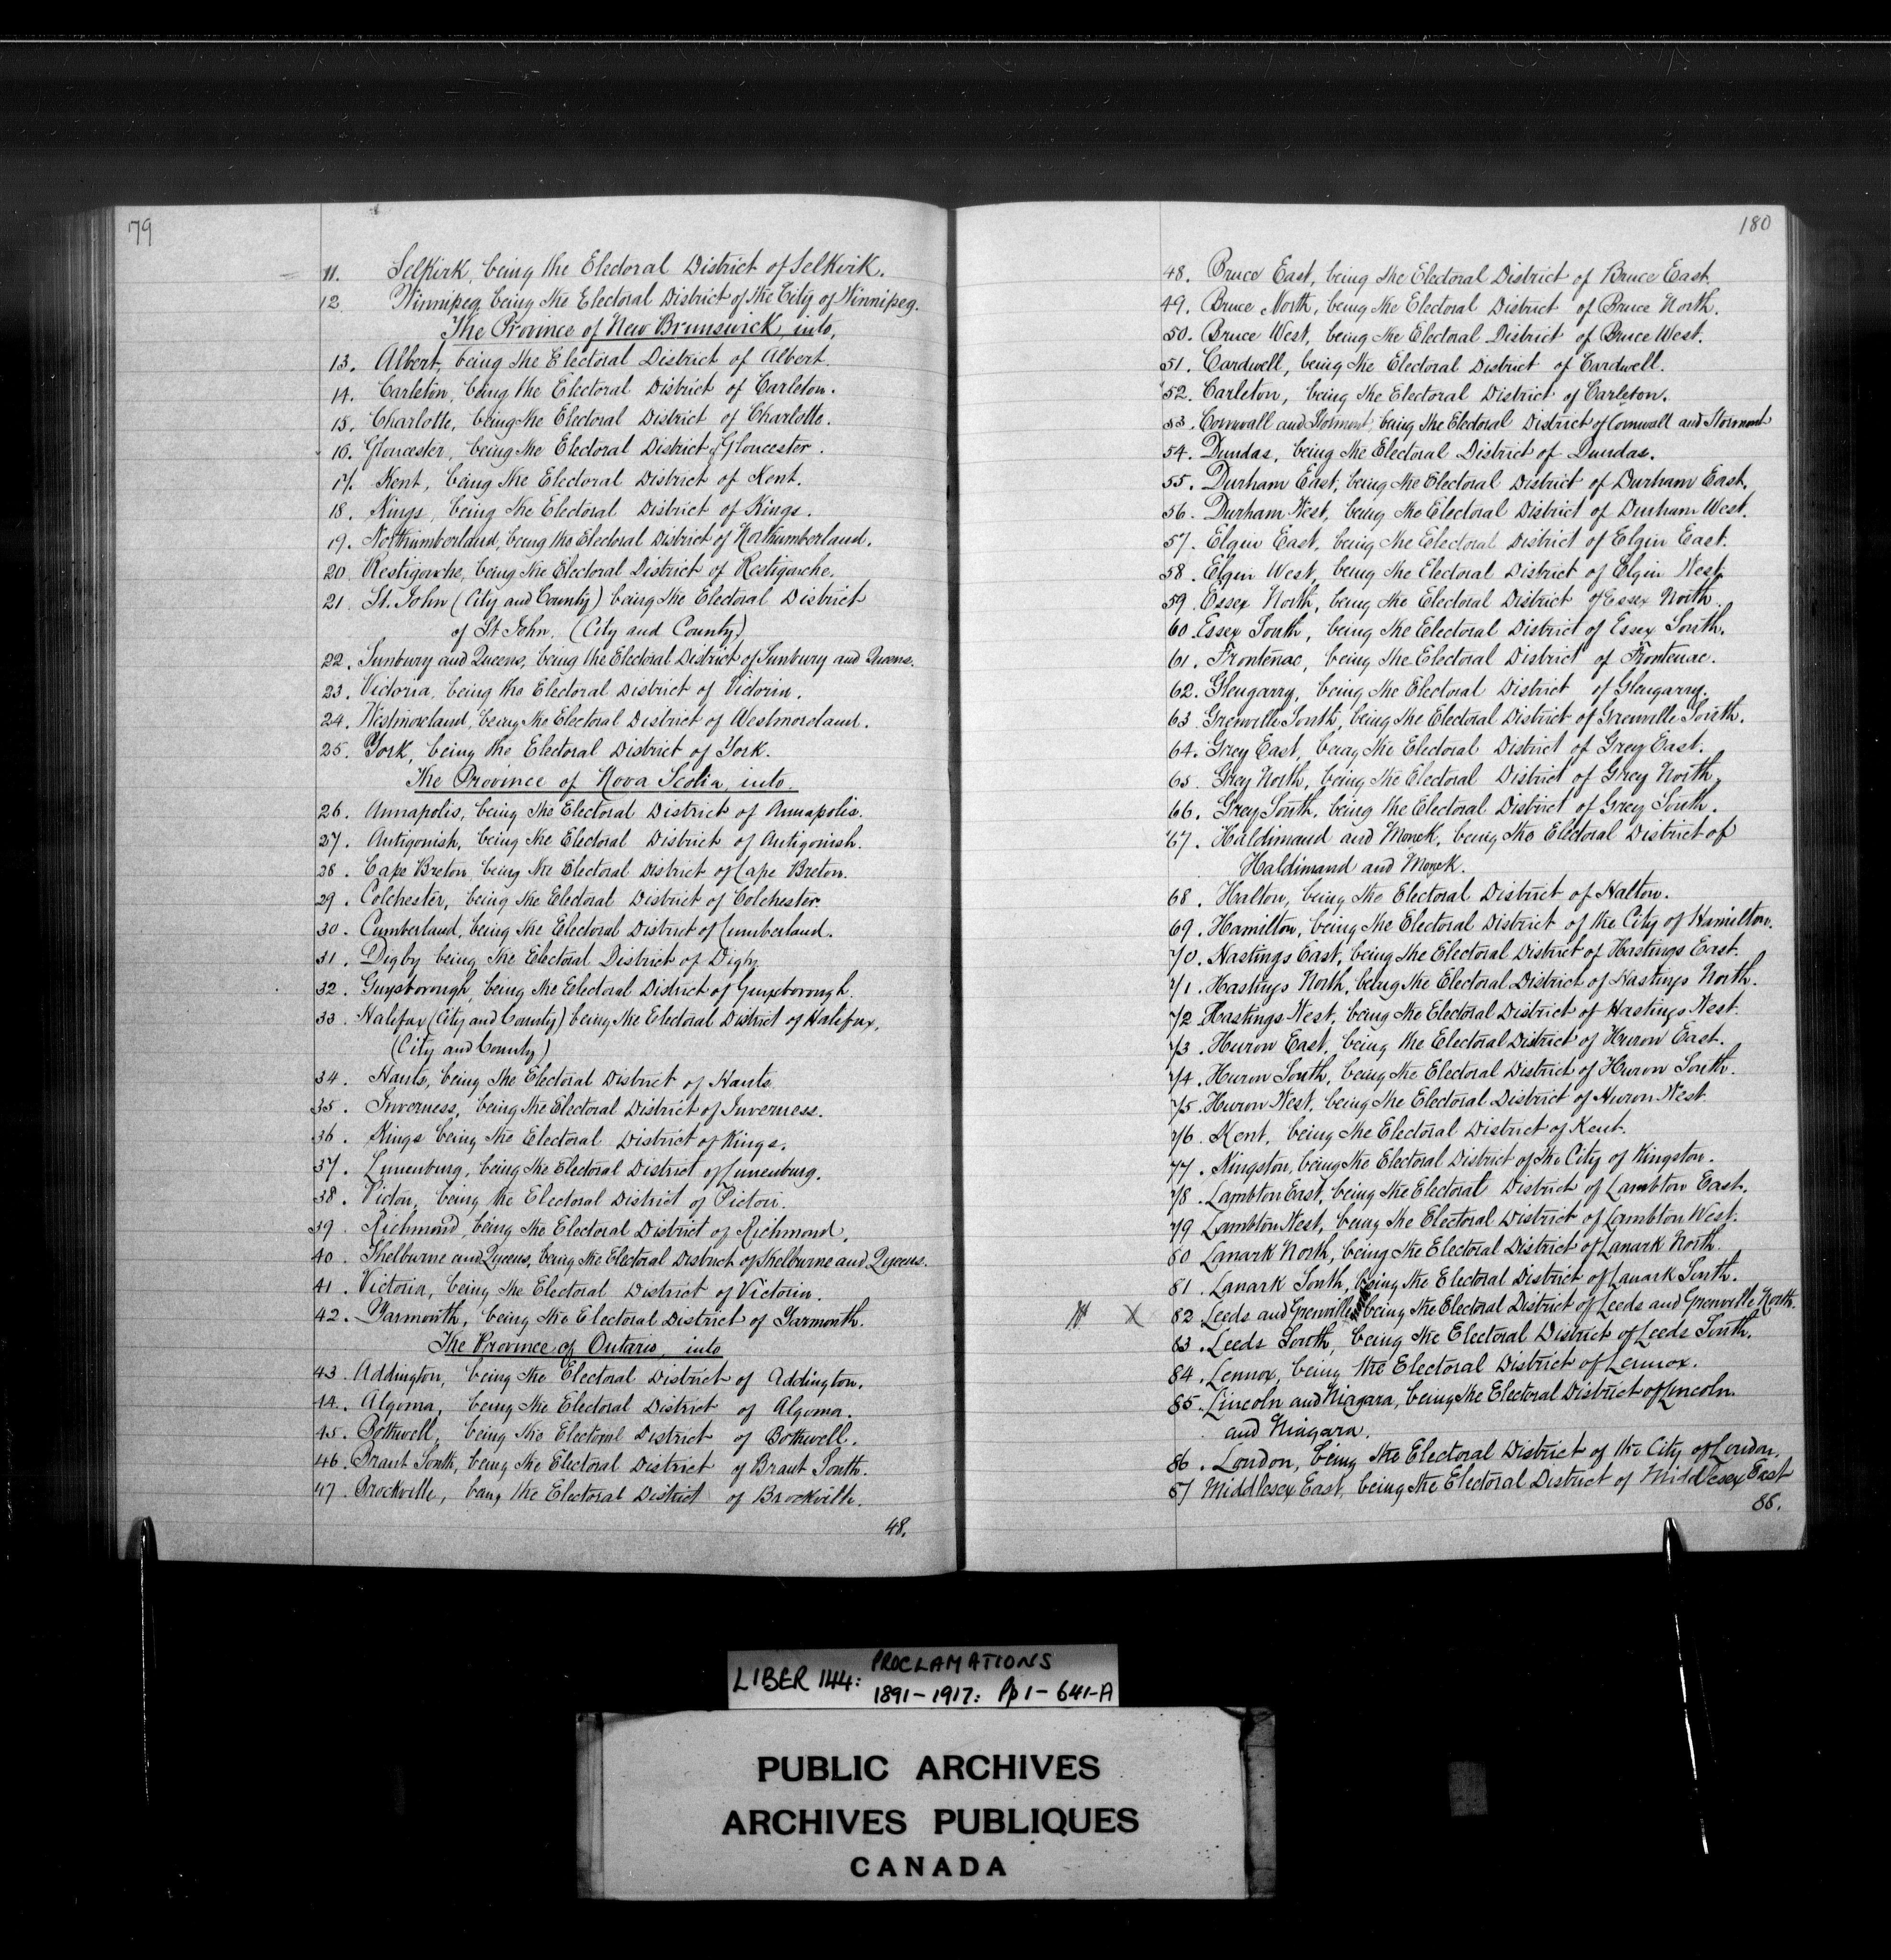 79
11. Selkirk, being the Electoral District of Selkirk.
12 Winnipeg, being the Electoral District of the City of Winnipeg.
The Province of New Brunswick, into,
13. Albert, being the Electoral District of Albert.
14. Carleton, being the Electoral District of Carleton.
15. Charlotte, being the Electoral District of Charlotte.
16. Gloucester, being the Electoral District of Gloucester.
17. Kent, being the Electoral District of Kent.
18. Kings, being the Electoral District of Kings.
19. Northumberland, being the Electoral District of Northumberland.
20 Restigouche, being the Electoral District of Restigouche.
21. St. John (City and County) being the Electoral District
of St John. (City and County)
22. Sunbury and Queens, being the Electoral District of Sunbury and Queens.
23. Victoria, being the Electoral District of Victoria.
24. Westmoreland, being the Electoral District of Westmoreland.
25. York, being the Electoral District of York.
The Province of Nova Scotia, into.
26. Annapolis, being the Electoral District of Annapolis.
27. Antigonish, being the Electoral District of Antigonish.
28. Cape Breton, being the Electoral District of Cape Breton.
29. Colchester, being the Electoral District of Colchester.
30. Cumberland, being the Electoral District of Cumberland.
31. Digby being the Electoral District of Digby.
32. Guysborough, being the Electoral District of Guysborough.
33. Halifax (City and County) being the Electoral District of Halifax,
(City and County)
34. Hants, being the Electoral District of Hants.
35. Inverness, being the Electoral District of Inverness.
36. Kings being the Electoral District of Kings.
37. Lunenburg, being the Electoral District of Lunenburg.
38. Pictou, being the Electoral District of Pictou.
39. Richmond, being the Electoral District of Richmond.
40. Shelburne and Queens, being the Electoral District of Shelburne and Queens.
41. Victoria, being the Electoral District of Victoria.
42. Yarmouth, being the Electoral District of Yarmouth.
The Province of Ontario, into
43. Addington, being the Electoral District of Addington.
44. Algoma, being the Electoral District of Algoma.
45. Bothwell, being the Electoral District of Bothwell.
46. Brant South, being the Electoral District of Brant South.
47. Brockville, being the Electoral District of Brockville.
48.
180
48. Bruce East, being the Electoral District of Bruce East.
49. Bruce North, being the Electoral District of Bruce North.
50. Bruce West, being the Electoral District of Bruce West.
51. Cardwell, being the Electoral District of Cardwell.
52. Carleton, being the Electoral District of Carleton.
53. Cornwall and Stormont, being the Electoral District of Cornwall and Stormont
54. Dundas, being the Electoral District of Dundas.
55. Durham East, being the Electoral District of Durham East.
56. Durham West, being the Electoral District of Durham West.
57. Elgin East, being the Electoral District of Elgin East.
58. Elgin West, being the Electoral District of Elgin West.
59. Essex North, being the Electoral District of Essex North.
60. Essex South, being the Electoral District of Essex South.
61. Frontenac, being the Electoral District of Frontenac.
62. Glengarry, being the Electoral District of Glengarry.
63 Grenville South, being the Electoral District of Grenville South.
64. Grey East, being the Electoral District of Grey East.
65. Grey North, being the Electoral District of Grey North.
66. Grey South, being the Electoral District of Grey South.
67. Haldimand and Monck, being the Electoral District of
Haldimand and Monck.
68. Halton, being the Electoral District of Halton.
69. Hamilton, being the Electoral District of the City of Hamilton.
70. Hastings East, being the Electoral District of Hastings East.
71. Hastings North, being the Electoral District of Hastings North.
72. Hastings West, being the Electoral District of Hastings West.
73. Huron East, being the Electoral District of Huron East.
74. Huron South, being the Electoral District of Huron South.
75. Huron West, being the Electoral District of Huron West.
76. Kent, being the Electoral District of Kent.
77. Kingston, being the Electoral District of the City of Kingston.
78. Lambton East, being the Electoral District of Lambton East.
79 Lambton West, being the Electoral District of Lambton West.
80 Lanark North, being the Electoral District of Lanark North.
81. Lanark South, being the Electoral District of Lanark South.
X 82 Leeds and Grenville being the Electoral District of Leeds and Grenville North.
83. Leeds South, being the Electoral District of Leeds South.
84. Lennox, being the Electoral District of Lennox.
85. Lincoln and Niagara, being the Electoral District of Lincoln
and Niagara.
86. London, being the Electoral District of the City of London.
87 Middlesex East, being the Electoral District of Middlesex East
88.
LIBER 144: PROCLAMATIONS
1891-1917: Pp 1-641-A
PUBLIC ARCHIVES
ARCHIVES PUBLIQUES
CANADA